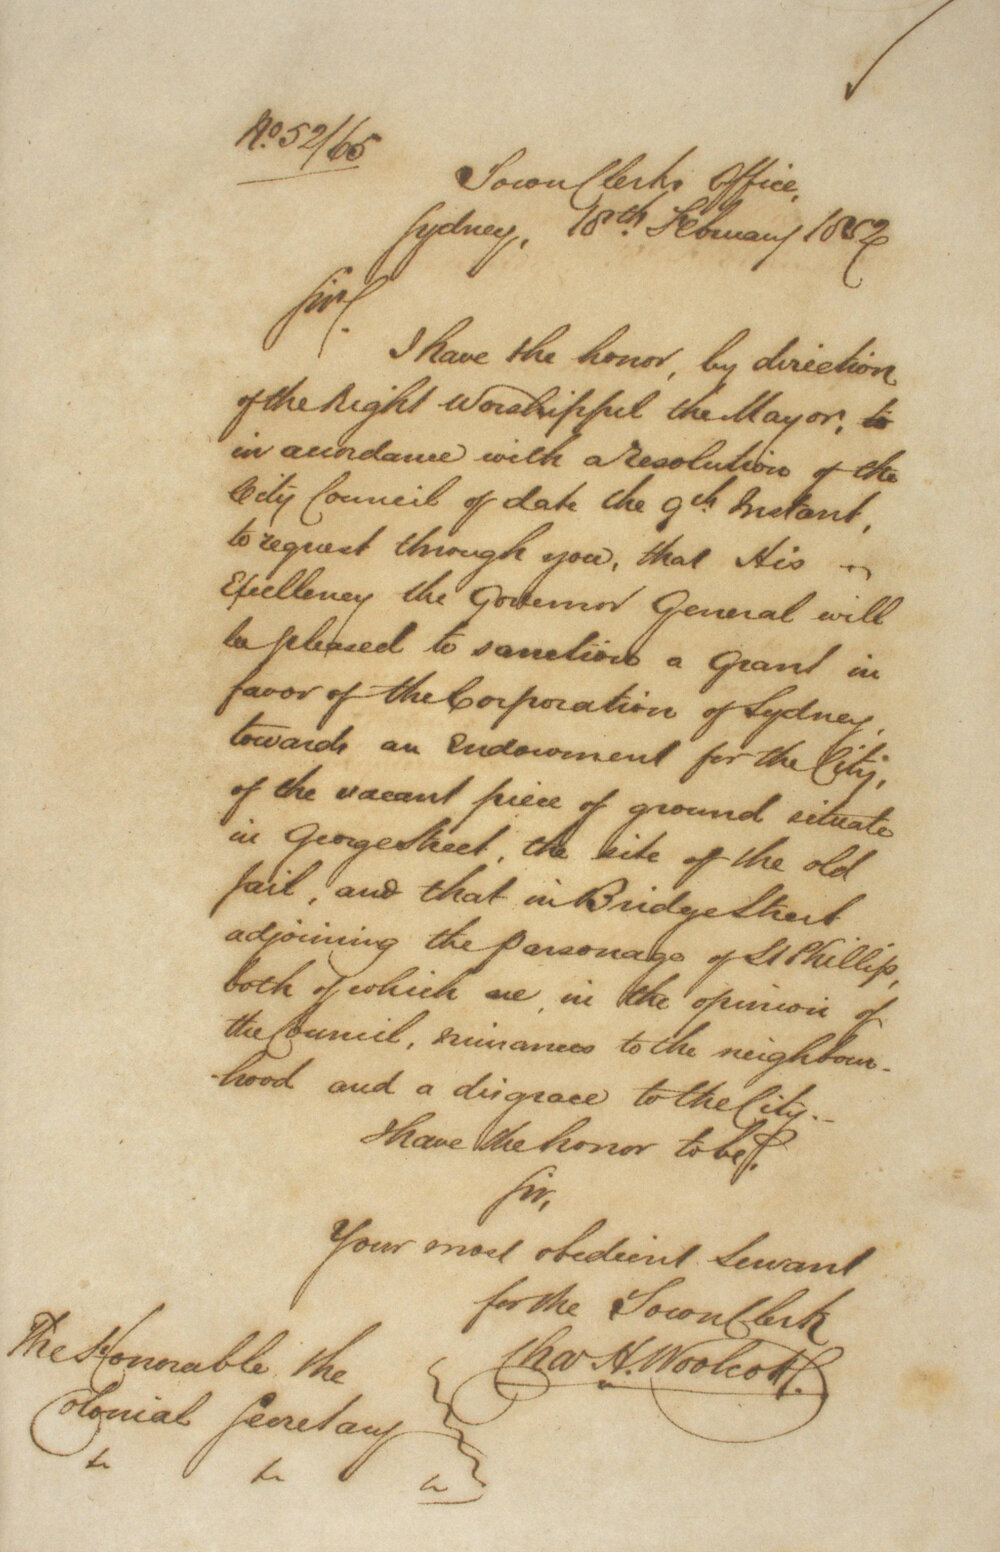 No. 52/65
Town Clerks Office,
Sydney, 18th February 1852
Sir,
I have the honor, by direction
of the Right Worshipful the Mayor, to
in accordance with a resolution of the
City Council of date the 9th Instant,
to request through you, that His
Excellency the Governor General will
be pleased to sanction a Grant in
favor of the Corporation of Sydney,
towards an Endowment for the City,
of the vacant piece of ground situate
in George Street, the site of the old
jail, and that in Bridge Street
adjoining the Parsonage of St Phillip,
both of which are, in the opinion of
the Council, nuisances to the neighbour-
-hood and a disgrace to the City.
I have the honor to be,
Sir,
Your most obedient Servant
for the Town Clerk
Chas H. Woolcott.
The Honorable the
Colonial Secretary